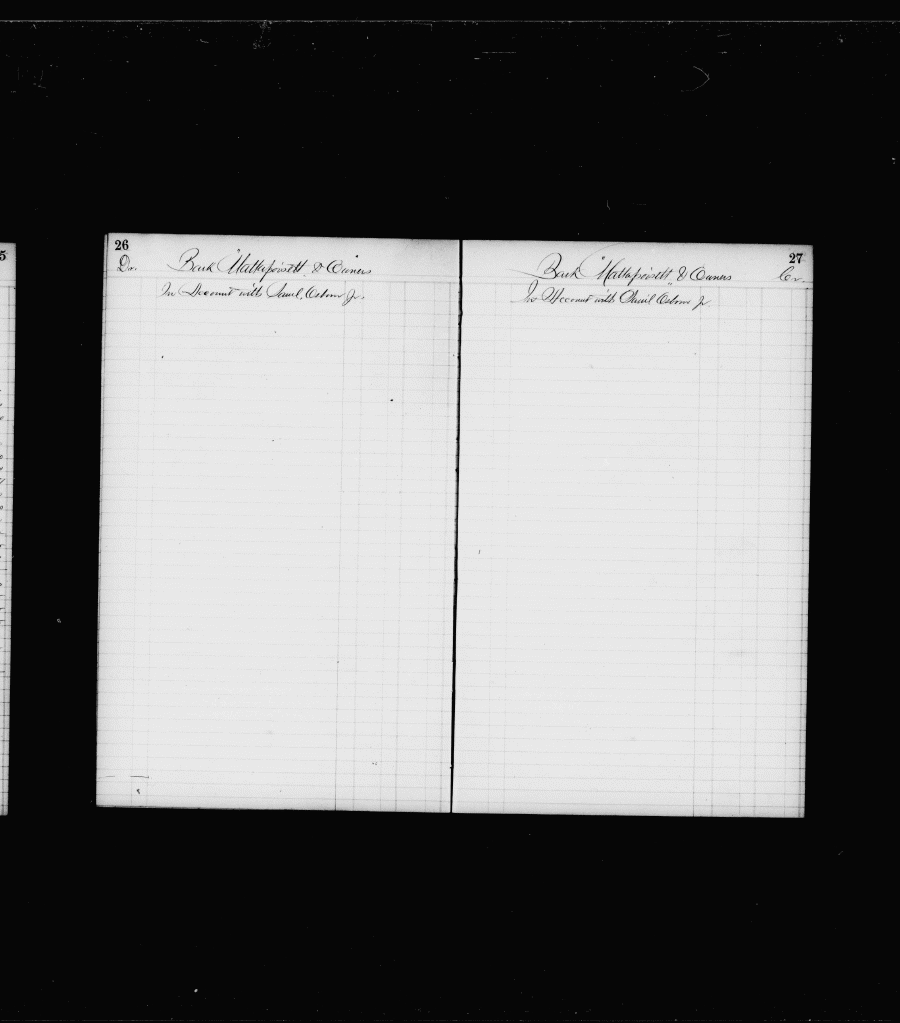 26
Dr. Bark "Mattapoisett" & Owners
In Account with Saml. Osborn Jr.
27
Bark "Mattapoisett" & Owners Cr.
In Account with Saml. Osborn Jr
5